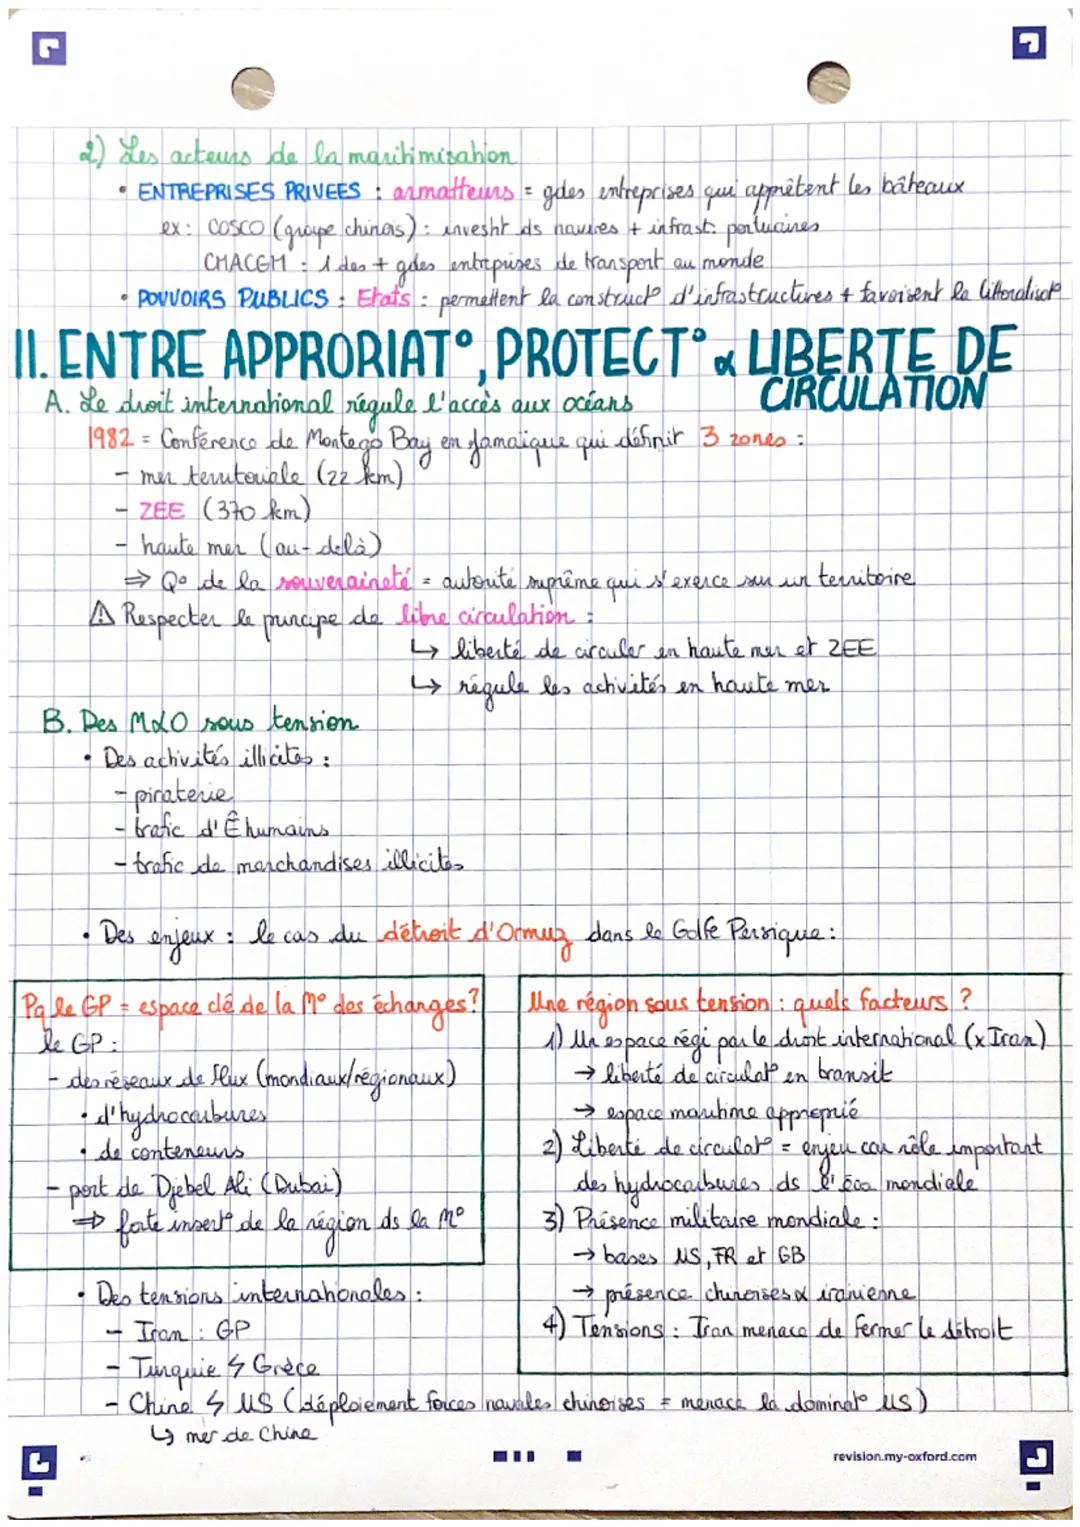 2) Les acteurs de la maritimisation
• ENTREPRISES PRIVEES : armatteurs = gdes entreprises qui apprêtent les bâteaux
ex : COSCO (groupe chinois) : investit ds navires + infrast. portuaires
CMACGM : 1 des + gdes entreprises de transport au monde
• POUVOIRS PUBLICS : Etats : permettent la construct° d'infrastructures + favorisent la littoralisat°
II. ENTRE APPRORIAT°, PROTECT° & LIBERTE DE
CIRCULATION
A. Le droit international régule l'accès aux océans
1982 = Conférence de Montego Bay en Jamaïque qui définit 3 zones :
- mer territoriale (22 km)
- ZEE (370 km)
- haute mer (au-delà)
⇒ Q° de la souveraineté = autorité suprême qui s'exerce sur un territoire
⚠ Respecter le principe de libre circulation :
↳ liberté de circuler en haute mer et ZEE
↳ régule les activités en haute mer
B. Des M&O sous tension
• Des activités illicites :
- piraterie
- trafic d'Ê humains
- trafic de marchandises illicites
• Des enjeux : le cas du détroit d'Ormuz dans le Golfe Persique :
Pq le GP = espace clé de la M° des échanges ?
le GP :
- des réseaux de flux (mondiaux/régionaux)
• d'hydrocarbures
• de conteneurs
- port de Djebel Ali (Dubaï)
⇒ forte insert° de la région ds la M°
Une région sous tension : quels facteurs ?
1) Un espace régi par le droit international (x Iran)
→ liberté de circulat° en transit
→ espace maritime approprié
2) Liberté de circulat° = enjeu car rôle important
des hydrocarbures ds l'éco mondiale
3) Présence militaire mondiale :
→ bases US, FR et GB
→ présence chinoises & iranienne
4) Tensions : Iran menace de fermer le détroit
• Des tensions internationales :
- Iran : GP
- Turquie ↯ Grèce
- Chine ↯ US (déploiement forces navales chinoises = menace la dominat° US)
↳ mer de Chine
revision.my-oxford.com